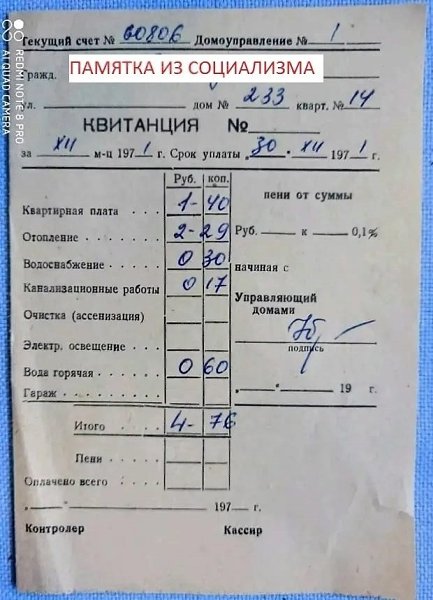 Текущий счет № 60806 Домоуправление № 1
Гражд.
ПАМЯТКА ИЗ СОЦИАЛИЗМА
ул. дом № 233 кварт. № 14
КВИТАНЦИЯ №
за XII м-ц 1971 г. Срок уплаты „30" XII 1971 г.
Руб. коп.
Квартирная плата 1-40
Отопление 2-29
Водоснабжение 0 30
Канализационные работы 0 17
Очистка (ассенизация)
Электр. освещение
Вода горячая 0 60
Гараж
Итого 4-76
Пени
Оплачено всего
пени от суммы
Руб. к 0,1%
начиная с
Управляющий
домами
подпись
„ " 19 г.
„ " 197 г.
Контролер Кассир
REDMI NOTE 8 PRO
AI QUAD CAMERA